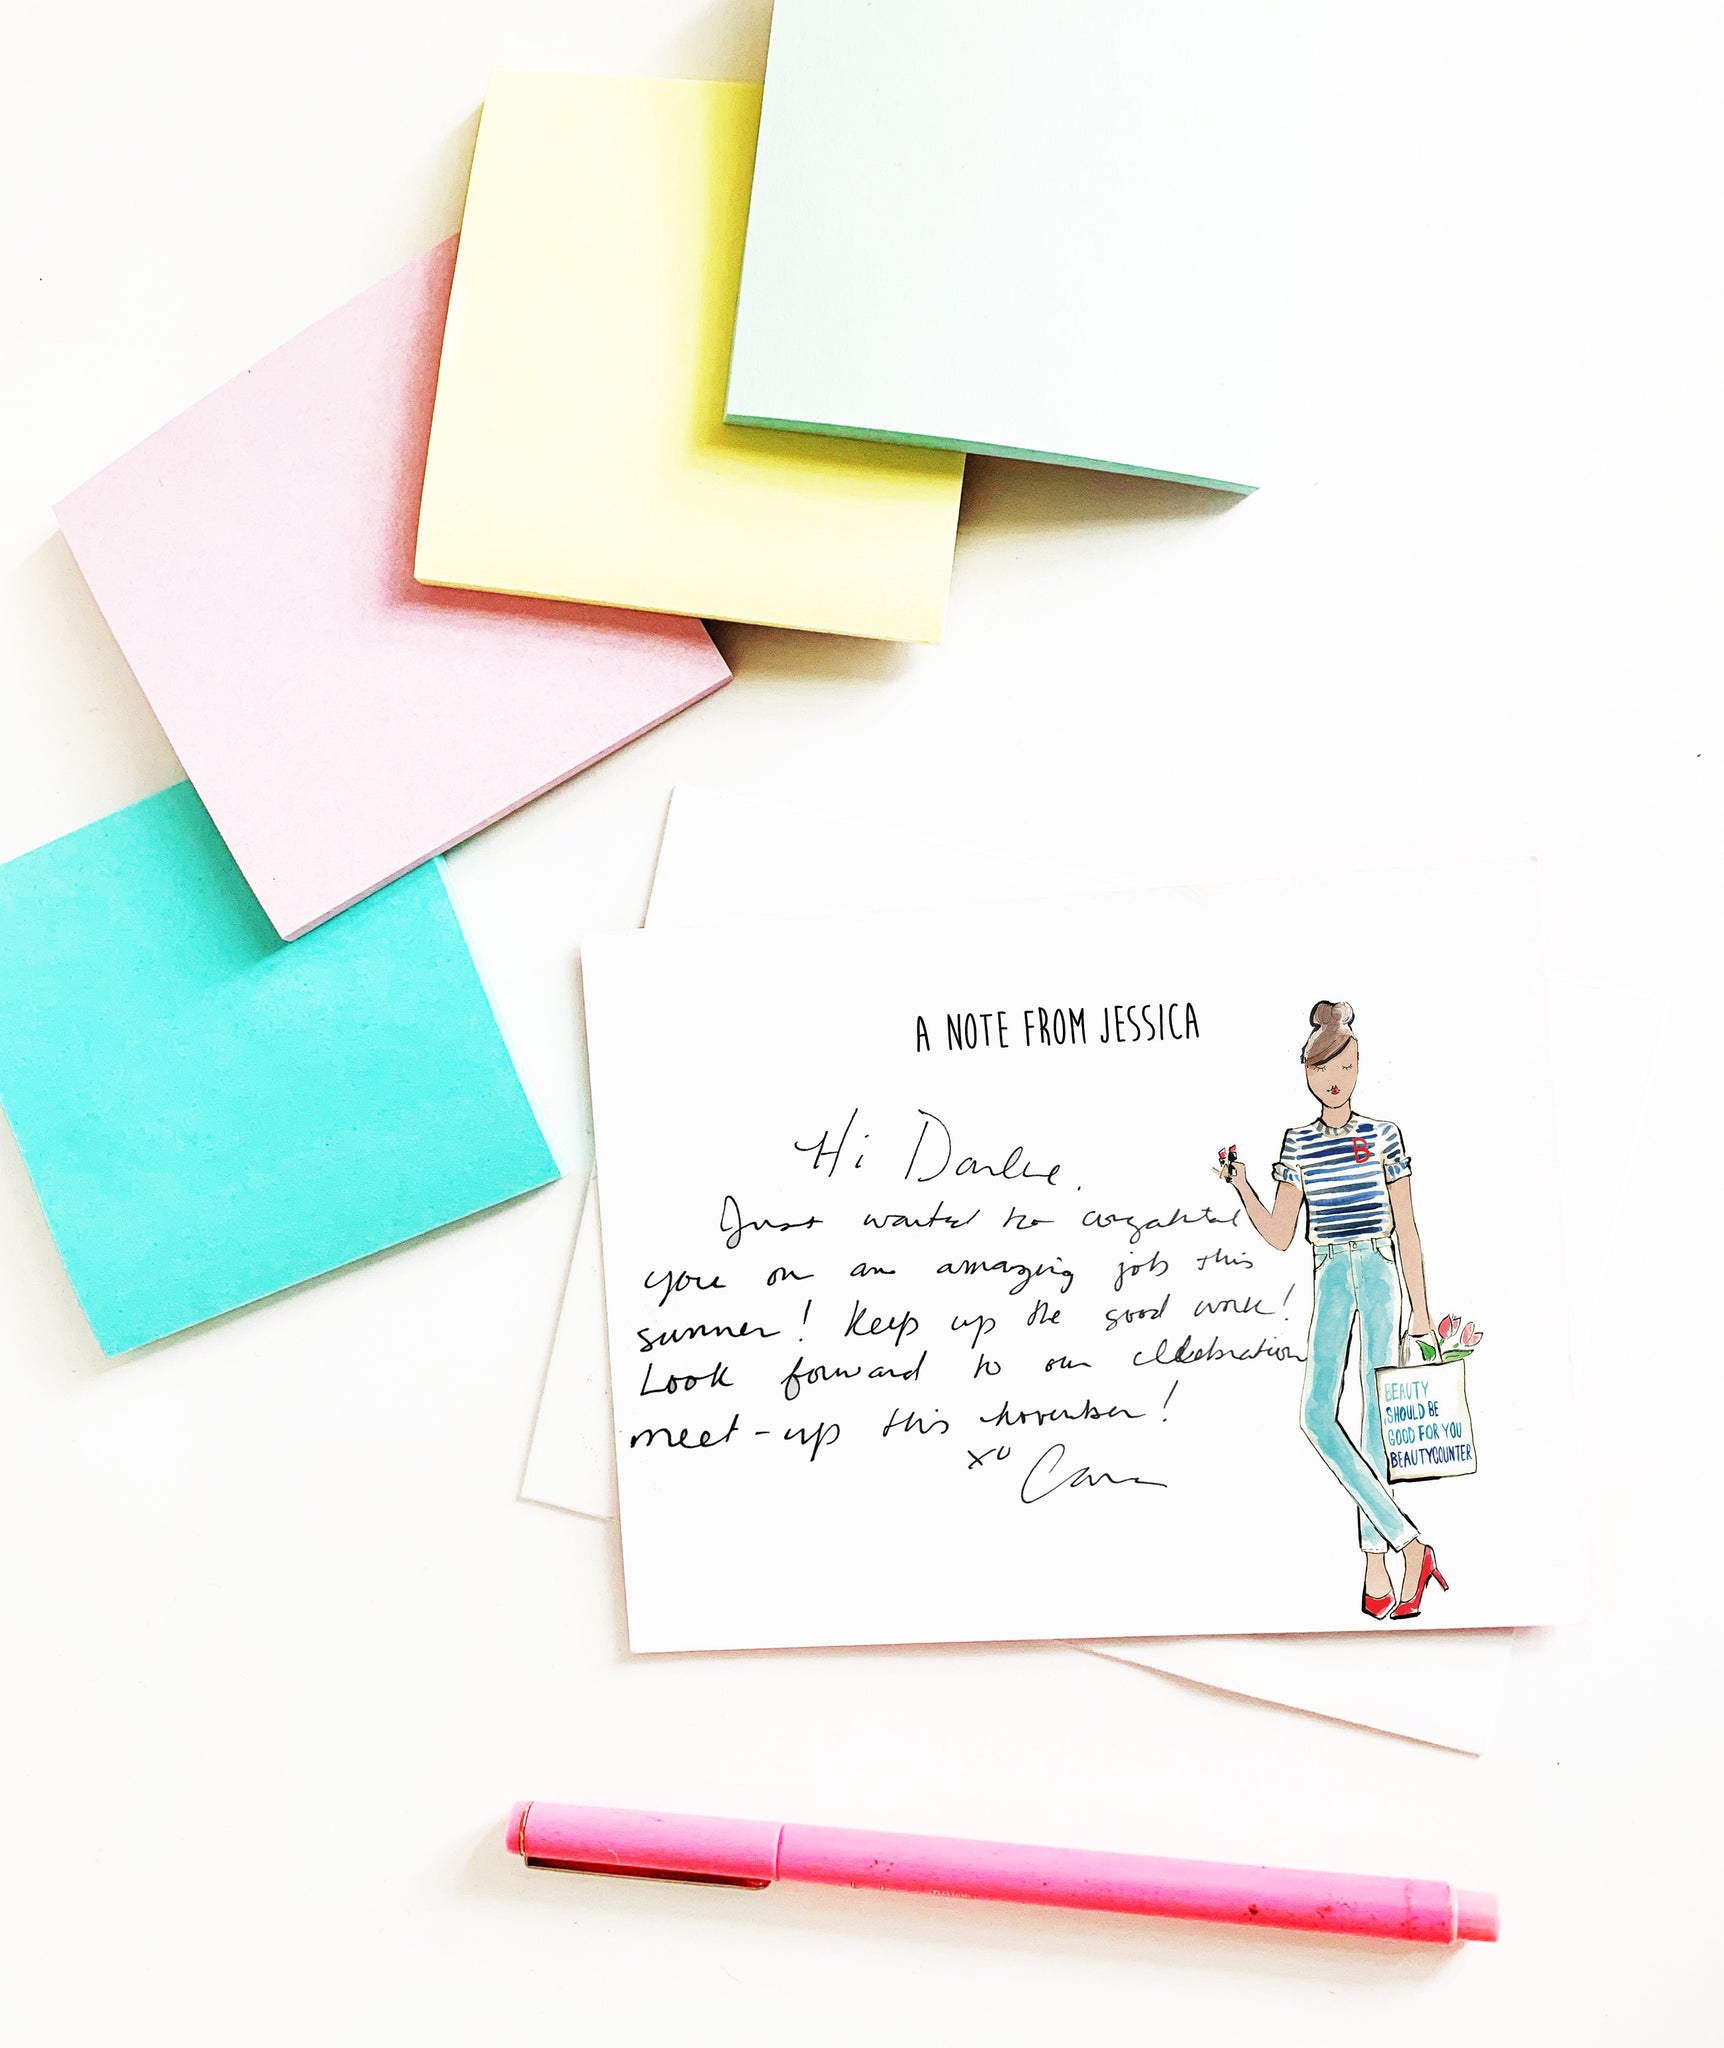 A NOTE FROM JESSICA
Hi Darlene.
Just wanted to
you on an amazing job this
summer! Keep up the good work!
Look forward to our celebration
meet-up this november!
xo Cara
B
BEAUTY
SHOULD BE
GOOD FOR YOU
BEAUTYCOUNTER